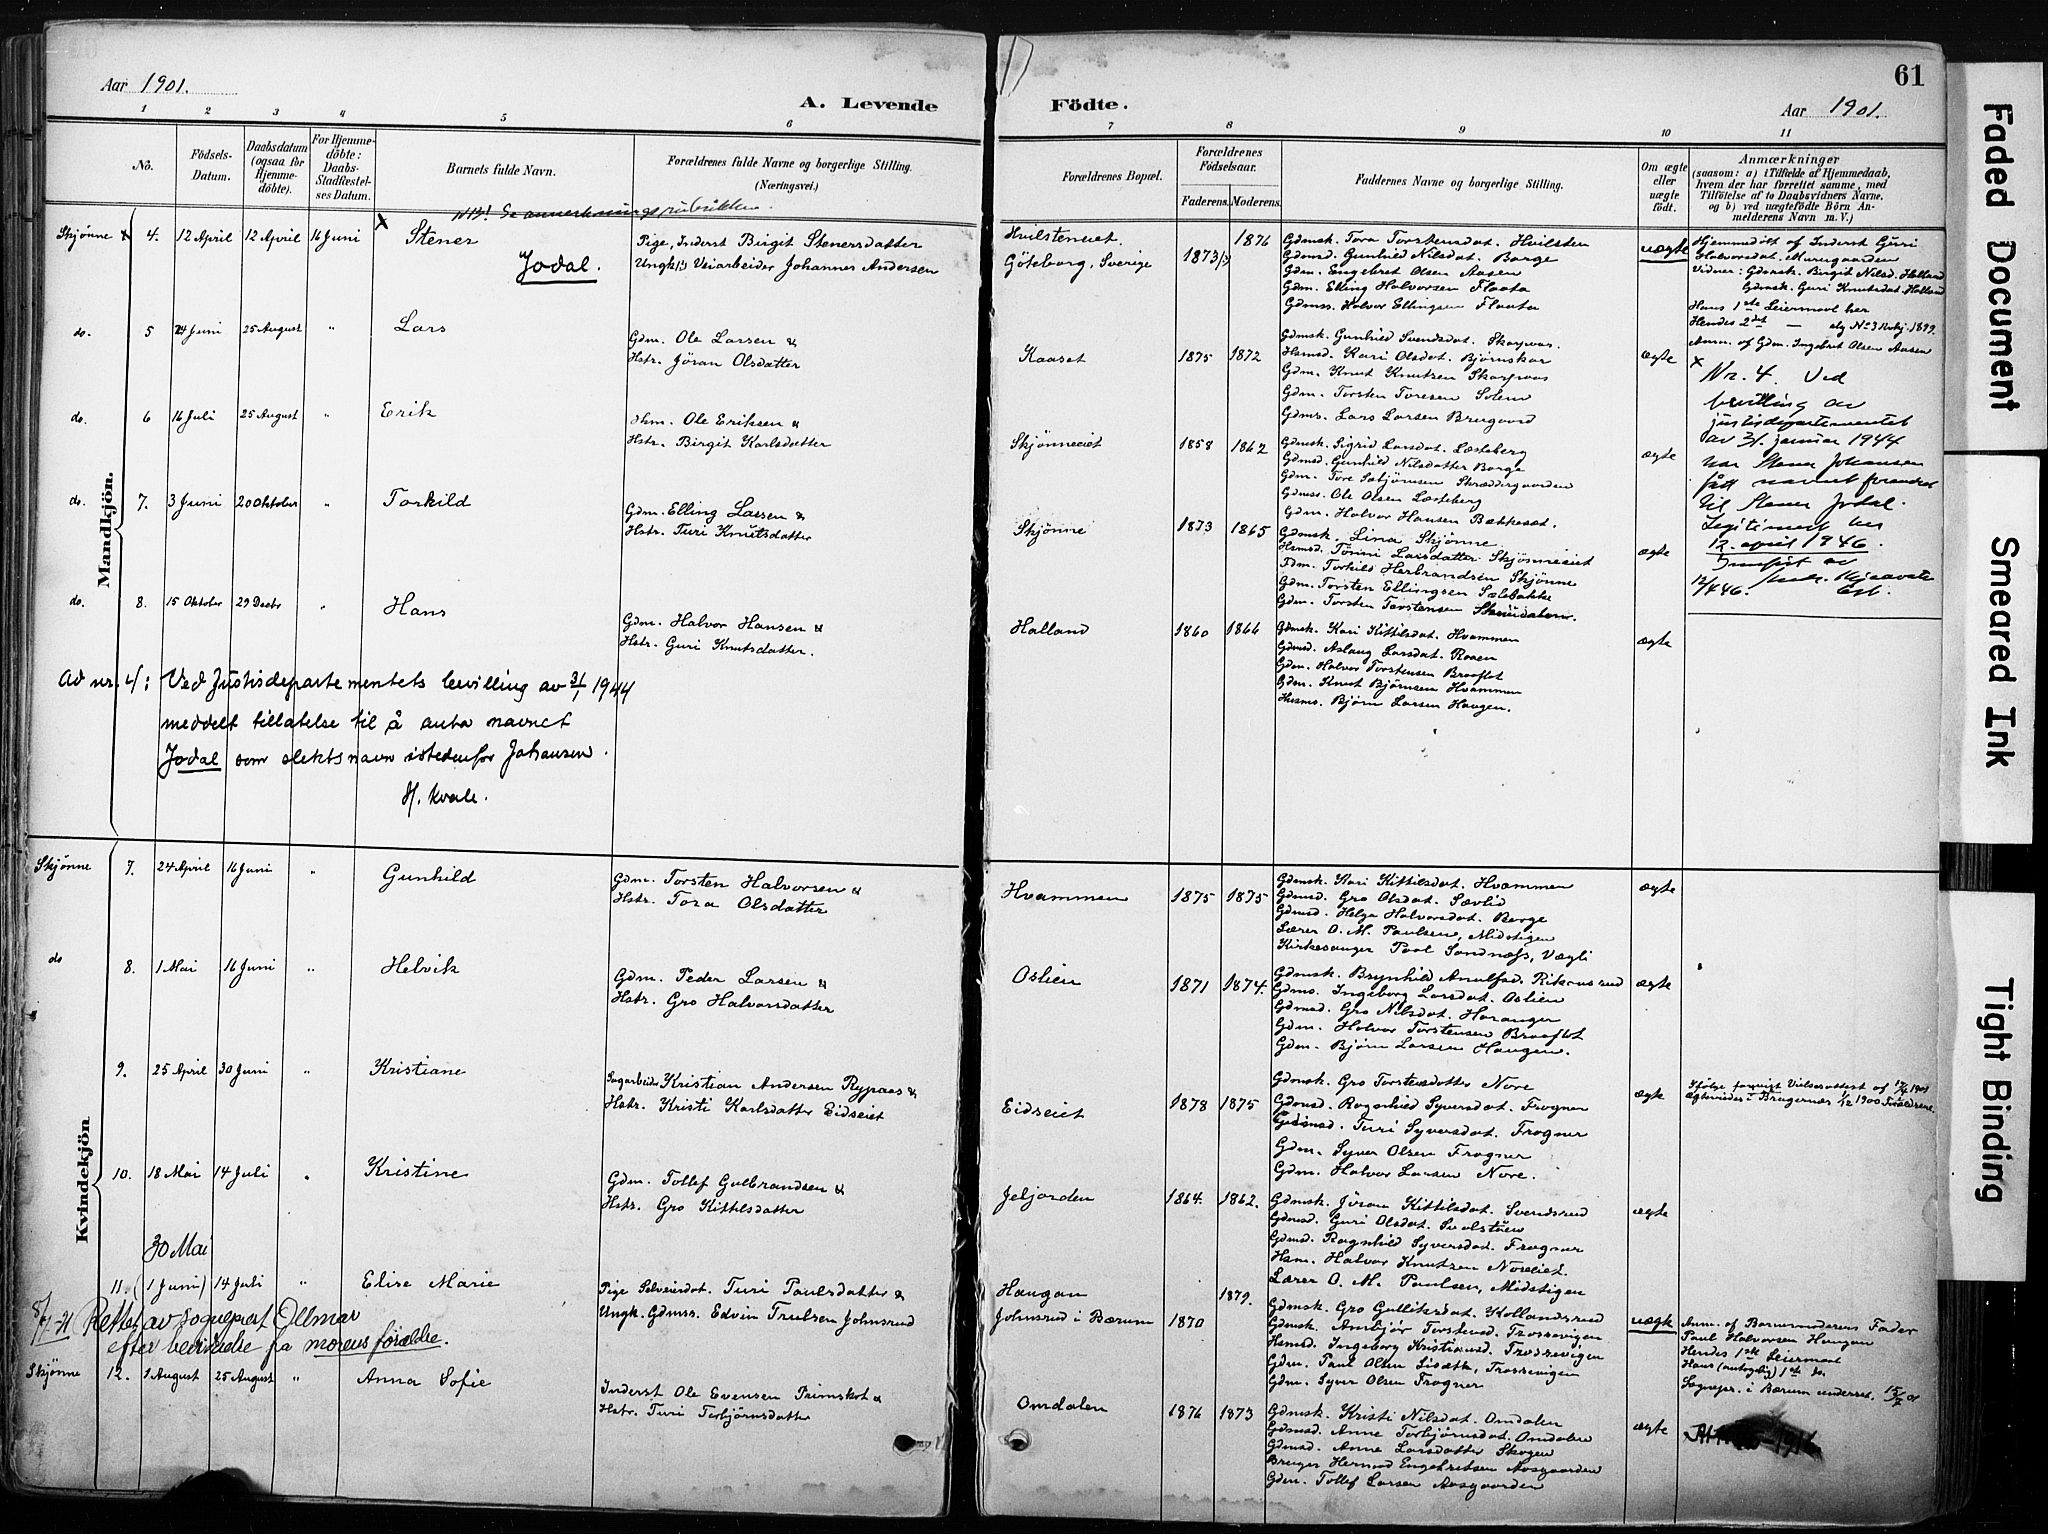 Aar 1901.
A. Levende
1 2 3 4 5 6
No.
Födsels-Datum.
Daabsdatum (ogsaa for Hjemme-döbte).
For Hjemme-döbte: Daabs-Stadfæstel-ses Datum.
Barnets fulde Navn.
Forældrenes fulde Navne og borgerlige Stilling. (Næringsvei.)
NB! Se anmerkningsrubrikken.
Mandkjön.
Skjønne x 4. 12 April 12 April 16 Juni x Stener
Jodal.
Pige, Inderst Birgit Stenersdatter
Ungk. Veiarbeider Johannes Andersen
do. 5 24 Juni 25 August " Lars
Gdm. Ole Larsen &
Hstr. Jöran Olsdatter
do. 6 16 Juli 25 August " Erik
Hm. Ole Eriksen &
Hstr. Birgit Karlsdatter
do. 7. 3 Juni 20 Oktober " Torkild
Gdm. Elling Larsen &
Hstr. Turi Knutsdatter
do. 8. 15 Oktober 29 Decbr " Hans
Gdm. Halvor Hansen &
Hstr. Guri Knutsdatter.
Ad nr. 4: Ved Justisdepartementets bevilling av 31/1 1944
meddelt tillatelse til å anta navnet
Jodal som slektsnavn istedenfor Johansen.
H. Kvale.
Kvindekjön
Skjønne 7. 24 April 16 Juni " Gunhild
Gdm. Torsten Halvorsen &
Hstr. Tora Olsdatter
do 8. 1 Mai 16 Juni " Helvik
Gdm. Peder Larsen &
Hstr. Gro Halvorsdatter
9. 25 April 30 Juni " Kristiane
Sagarbeider Kristian Andersen Rypaas &
Hstr. Kristi Karlsdatter Eidseiet
10. 18 Mai 14 Juli " Kristine
Gdm. Tollef Gulbrandsen &
Hstr. Gro Kittilsdatter
30 Mai
11. (1 Juni) 14 Juli " Elise Marie
Pige Selveierdat. Turi Paulsdatter &
Ungk. Gdmss. Edvin Trulsen Johnsrud
Rettet av sogneprest Ollmar
efter bevidnelse fra morens forældre.
Skjønne 12. 1 August 25 August " Anna Sofie
Inderst Ole Evensen Primskot &
Hstr. Turi Torbjörnsdatter
61
Födte.
Aar 1901.
7 8 9 10 11
Forældrenes Bopæl.
Forældrenes Födselsaar.
Faderens. Moderens.
Faddernes Navne og borgerlige Stilling.
Om ægte eller uægte födt.
Anmærkninger
(saasom: a) i Tilfælde af Hjemmedaab,
hvem der har forrettet samme, med
Tilföielse af to Daabsvidners Navne,
og b) ved uægtefödte Börn An-
melderens Navn m. V.)
Hvilsteneiet. 1876
Göteborg, Sverige 1873
Gdmsk. Tora Torstensdat. Hvilsten
Gdmsd. Gunhild Nilsdat. Borge
Gdm. Engebret Olsen Aasen
Gdm. Elling Halvorsen Flaata
Gdmss. Halvor Ellingsen Flaata
uægte
Hjemmedöbt af Inderst Guri
Halvorsdat. Murugaarden
Vidner: Gdmsk. Birgit Nilsd. Holland
Gdmsk. Guri Knutsdat. Holland
Hans 1ste Leiermaal her
Hendes 2det — cfg No 3 1899.
Anm. af Gdm. Ingebret Olsen Aasen
Kaaset 1875 1872
Gdmsk. Gunhild Svendsdat. Skarpaas.
Hsmsd. Kari Olsdat. Björnskar
Gdm. Knut Knutsen Skarpaas
Gdm. Torsten Toresen Solem
Gdms. Lars Larsen Brugaard
ægte
x Nr. 4. Ved
bevilling av
justisdepartementet
av 31. januar 1944
har Stener Johansen
fått navnet forandret
til Stener Jodal.
Legitimert her
12. april 1946.
12/4 46.
Skjönneeiet 1858 1862
Gdmsk. Sigrid Larsdat. Lesteberg
Gdmsd. Gunhild Nilsdatter Borge
Gdm. Tore Skræddergaarden
Gdmss. Ole Olsen Lesteberg
Gdm. Halvor Hansen Bækkeset.
ægte
Skjønne 1873 1865
Gdmsk. Lina Skjønne
Hsmsd. Tönni Larsdatter Skjønneeiet
Fdm. Torkild Herbrandsen Skjønne
Gdm. Torsten Ellingsen Sælebakke
Gdm. Torsten Torstensen
ægte
Holland 1860 1866
Gdmsk. Kari Kittilsdat. Hvammen
Gdmsd. Aslaug Larsdat. Raaen
Gdm. Halvor Torstensen Brooflot
Gdm. Knut Bjørnsen Hvammen
Husms. Bjørn Larsen Haugen.
ægte
Hvammen 1875 1875
Gdmsk. Kari Kittilsdat. Hvammen
Gdmsd. Gro Olsdat. Sævlid
Gdmsd. Helga Halvorsdat. Borge
Lærer O. M. Paulsen, Midstigen
Kirkesanger Paal Sandnæss, Vægli
ægte
Oslien 1871 1874.
Gdmsk. Brynhild
Gdms. Ingeborg Larsdat. Oslien
Gdmsd. Gro Nilsdat. Haranger
Gdm. Halvor Torstensen Brooflot
Gdm. Bjørn Larsen Haugen.
ægte
Eidseiet 1878 1875
Gdmsk. Gro Torstensdatter Nore
Gdmsd. Ragnhild Syversdat. Frogner
Gdmsd. Turi Syversdat. Frogner
Gdm. Syver Olsen Frogner
Gdm. Halvor Larsen Nore.
ægte
Ifölge forevist Vielsesattest af 1901
ægteviedes i Bragernæs 1900 Forældrene.
Jeljorden 1864. 1862.
Gdmsk. Jöran Kittilsdat. Svendsrud
Gdmsd. Guri Olsdat.
Gdmsd. Ragnhild Syversdat. Frogner
Hsm. Halvor Knutsen Noreeiet.
Lærer O. M. Paulsen, Midstigen
ægte
Haugan 1879.
Johnsrud i Bærum 1870
Gdmsk. Gro Gulliksdat. Kollandsrud
Gdmsk. Ambjör Torstensd. Trossevigen
Hsmsd. Ingeborg Kristiansd. Trossevigen
Gdm. Paul Olsen Trossevigen
Gdm. Syver Olsen Frogner
uægte
Anm. af Barnemoderens Fader
Paul Halvorsen Haugan
Hendes 1ste Leiermaal
Hans (antagelig) 1ste do.
Sognepr. i Bærum underret.
Omdalen 1876 1873
Gdmsk. Kristi Nilsdat. Omdalen
Gdmsd. Anne Torbjörnsdat. Omdalen
Gdmsd. Anne Larsdatter Skogen
Bruger Herman Engebretsen Aasgaarden
Gdm. Tollef Larsen Aasgaarden
ægte
Faded Document
Smeared Ink
Tight Binding